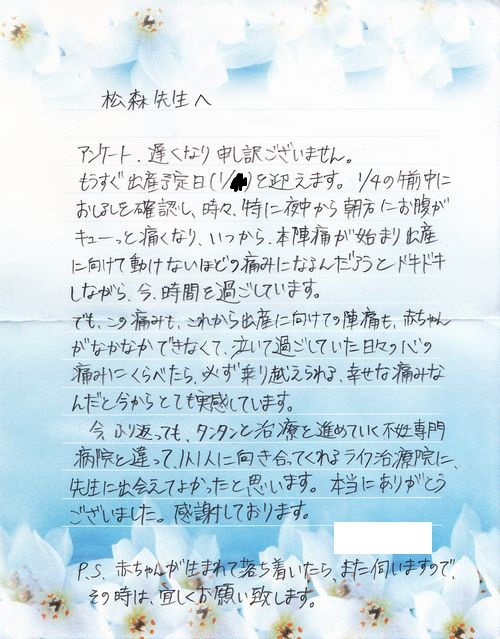 松森先生へ
アンケート、遅くなり申し訳ございません。
もうすぐ出産予定日(1/)を迎えます。1/4の午前中に
おしるしを確認し、時々、特に夜中から朝方にお腹が
キューっと痛くなり、いつから、本陣痛が始まり出産
に向けて動けないほどの痛みになるんだろうとドキドキ
しながら、今、時間を過ごしています。
でも、この痛みも、これから出産に向けての陣痛も、赤ちゃん
がなかなかできなくて、泣いて過ごしていた日々の心の
痛みにくらべたら、必ず乗り越えられる、幸せな痛みな
んだと今からとても実感しています。
今、ふり返っても、タンタンと治療を進めていく不妊専門
病院と違って、1人1人に向き合ってくれるライフ治療院に、
先生に出会えてよかったと思います。本当にありがとう
ございました。感謝しております。
P.S. 赤ちゃんが生まれて落ち着いたら、また伺いますので、
その時は、宜しくお願い致します。